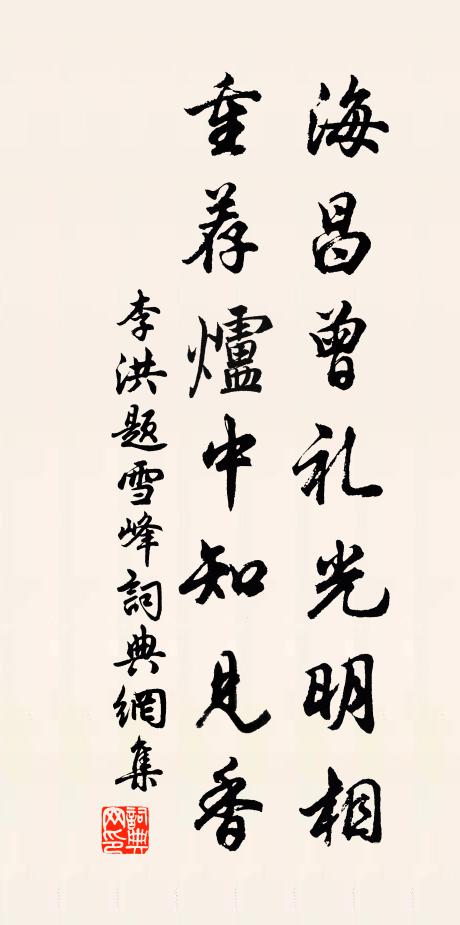 海昌曾礼光明相
重荐爐中知見香
李洪题雪峰詞典網集
詞典網印